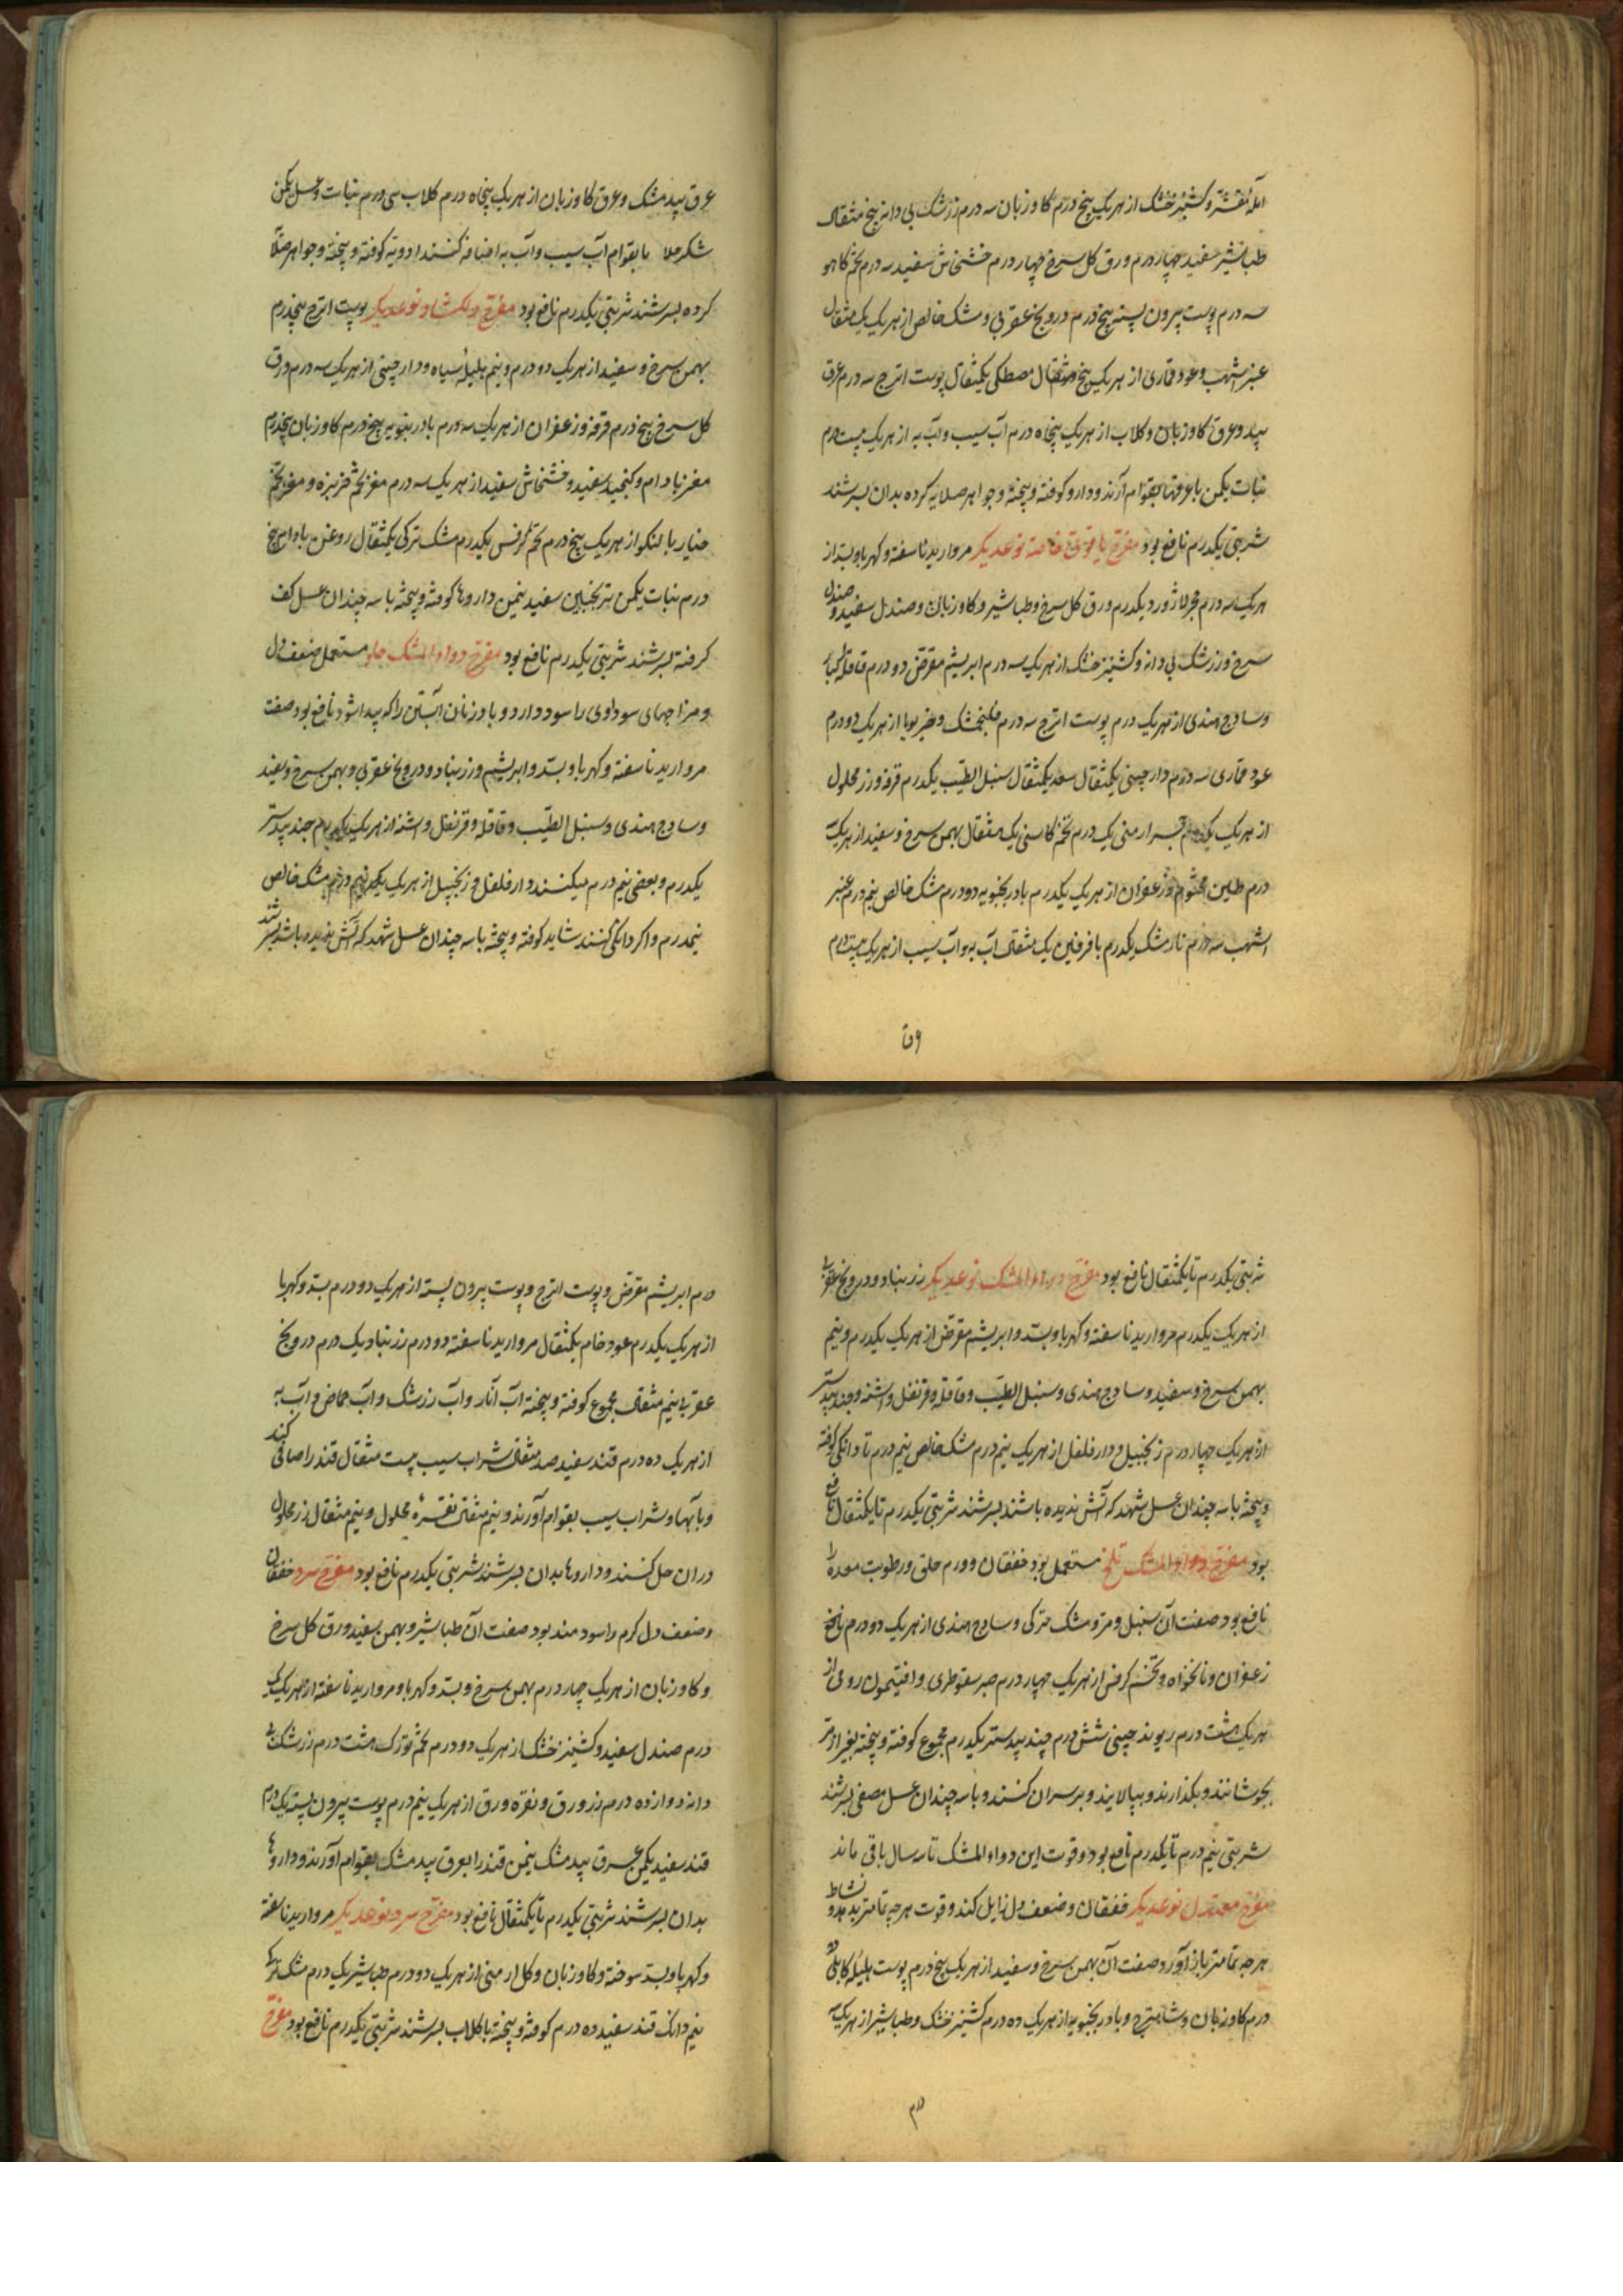 آمله مقشر و کشنیز خشک از هر یک پنج درم کاوزبان سه درم زرشک بی دانه پنج مثقال
طباشیر سفید چهار درم ورق کل سرخ چهار درم خشخاش سفید سه درم تخم کاهو
سه درم پوست بیرون پسته پنج درم درونج عقربی و مشک خالص از هر یک یک مثقال
عنبر اشهب و عود قماری از هر یک پنج مثقال مصطکی یکمثقال پوست اترج سه درم عرق
بید و عرق کاوزبان و کلاب از هر یک پنجاه درم آب سیب و آب به از هر یک بیست درم
نبات یکمن با عرقها بقوام آرند و دارو کوفته و پیخته و جواهر صلایه کرده بدان بسرشند
شربتی یکدرم نافع بود مفرح یاقوتی نوعدیکر مروارید ناسفته و کهربا و بسد از
هر یک سه درم حجر لاژورد یکدرم ورق کل سرخ و طباشیر و کاوزبان و صندل سفید و صندل
سرخ و زرشک بی دانه و کشنیز خشک از هر یک سه درم ابریشم مقرض دو درم قاقله کبار
و سادج هندی از هر یک درم پوست اترج سه درم فلنجمشک و خیربوا از هر یک دو درم
عود قماری سه درم دارچینی یکمثقال سعد یکمثقال سنبل الطیب یکدرم قرفه و زر محلول
از هر یک یکدرم حجر ارمنی یک درم تخم کاسنی یک مثقال بهمن سرخ و سفید از هر یک
درم طین مختوم و زعفران از هر یک یکدرم بادرنجبویه دو درم مشک خالص نیم درم عنبر
اشهب سه درم نارمشک یکدرم بافرفین یک مثقال آب به و آب سیب از هر یک بیست درم
عرق بید مشک و عرق کاوزبان از هر یک پنجاه درم کلاب سی درم نبات و عسل یکمن
شکر جلا با بقوام آب سیب و آب به اضافه کنند ادویه کوفته و پیخته و جواهر صلا
کرده بسرشند شربتی یکدرم نافع بود مفرح دلکشا نوعدیکر پوست اترج پنجدرم
بهمن سرخ و سفید از هر یک دو درم و نیم هلیله سیاه و دارچینی از هر یک سه درم ورق
کل سرخ پنج درم قرفه و زعفران از هر یک سه درم بادرنبویه پنج درم کاوزبان پنجدرم
مغز بادام و کنجید سفید و خشخاش سفید از هر یک سه درم مغز تخم خربزه و مغز تخم
خیار بالنکو از هر یک پنج درم تخم کرفس یکدرم مشک ترکی یکمثقال روغن بادام پنج
درم نبات یکمن ترنجبین سفید نیمن داروها کوفته و پیخته با سه چندان عسل کف
کرفته بسرشند شربتی یکدرم نافع بود مفرح دواء المشک حلو مستعمل ضعف دل
و مزاجهای سوداوی را سود دارد و باد زنان آبستن را که پیدا شود نافع بود صفت
مروارید ناسفته و کهربا و بسد و ابریشم و زرنباد و درونج عقربی و بهمن سرخ و سفید
و سادج هندی و سنبل الطیب و قاقله و قرنفل و اشنه از هر یک یکدرم جند بیدستر
یکدرم و بعضی نیم درم میکنند دارفلفل و زنجبیل از هر یک نیم درم مشک خالص
نیمدرم و اکر دانکی کنند شاید کوفته و پیخته با سه چندان عسل شهد که آتش ندیده باشد بسرشند
شربتی یکدرم تا یکمثقال نافع بود مفرح دواء المشک نوعدیکر زرنباد و درونج عقربی
از هر یک یکدرم مروارید ناسفته و کهربا و بسد و ابریشم مقرض از هر یک یکدرم و نیم
بهمن سرخ و سفید و سادج هندی و سنبل الطیب و قاقله و قرنفل و اشنه و جند بیدستر
از هر یک چهار درم زنجبیل و دارفلفل از هر یک نیم درم مشک خالص نیم درم تا دانکی کوفته
و پیخته با سه چندان عسل شهد که آتش ندیده باشد بسرشند شربتی یکدرم تا یکمثقال نافع
بود مفرح دواء المشک تلخ مستعمل بود خفقان و ورم حلق و رطوبت معده را
نافع بود صفت آن سنبل و مر و مشک ترکی و سادج هندی از هر یک دو درم نانخ
زعفران و نانخواه و تخم کرفس از هر یک چهار درم صبر سقوطری و افتیمون رومی از
هر یک هشت درم ریوند چینی شش درم جند بیدستر یکدرم مجموع کوفته و پیخته بغیر از مر
بجوشانند و بکذارند و بپالایند و بر سر آن کنند و با سه چندان عسل مصفی بسرشند
شربتی نیم درم تا یکدرم نافع بود و قوت این دواء المشک تا سه سال باقی ماند
مفرح معتدل نوعدیکر خفقان و ضعف دل زایل کند و قوت هر چه تمامتر بدهد و نشاط
هر چه تمامتر باز آورد صفت آن بهمن سرخ و سفید از هر یک پنج درم پوست هلیله کابلی ده
درم کاوزبان و شاهترج و بادرنجبویه از هر یک ده درم کشنیز خشک و طباشیر از هر یک
درم ابریشم مقرض و پوست اترج و پوست بیرون پسته از هر یک دو درم بسد و کهربا
از هر یک یکدرم عود خام یکمثقال مروارید ناسفته دو درم زرنباد یک درم درونج
عقربی نیم مثقال مجموع کوفته و پیخته آب انار و آب زرشک و آب حماض و آب به
از هر یک ده درم قند سفید صد مثقال شراب سیب بیست مثقال قند را صافی کنند
و با آبها و شراب سیب بقوام آورند و نیم مثقال نقره محلول و نیم مثقال زر محلول
در آن حل کنند و داروها بدان بسرشند شربتی یکدرم نافع بود مفرح سرد خفقان
و ضعف دل کرم را سودمند بود صفت آن طباشیر و بهمن سفید و ورق کل سرخ
و کاوزبان از هر یک چهار درم بهمن سرخ و بسد و کهربا و مروارید ناسفته از هر یک یک
درم صندل سفید و کشنیز خشک از هر یک دو درم تخم تورک هشت درم زرشک بی
دانه دوازده درم زر ورق و نقره ورق از هر یک نیم درم پوست بیرون پسته یک درم
قند سفید یکمن عرق بید مشک نیمن قند را بعرق بید مشک بقوام آورند و داروها
بدان بسرشند شربتی یکدرم تا یکمثقال نافع بود مفرح سرد نوعدیکر مروارید ناسفته
و کهربا و بسد سوخته و کاوزبان و کل ارمنی از هر یک دو درم طباشیر یک درم مشک ترکی
نیم دانک قند سفید ده درم کوفته و پیخته با کلاب بسرشند شربتی یکدرم نافع بود مفرح